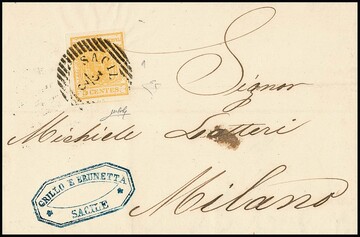 SACILE
5 CENTES
Signor
Michiele
Milano
GRILLO E BRUNETTA
SACILE